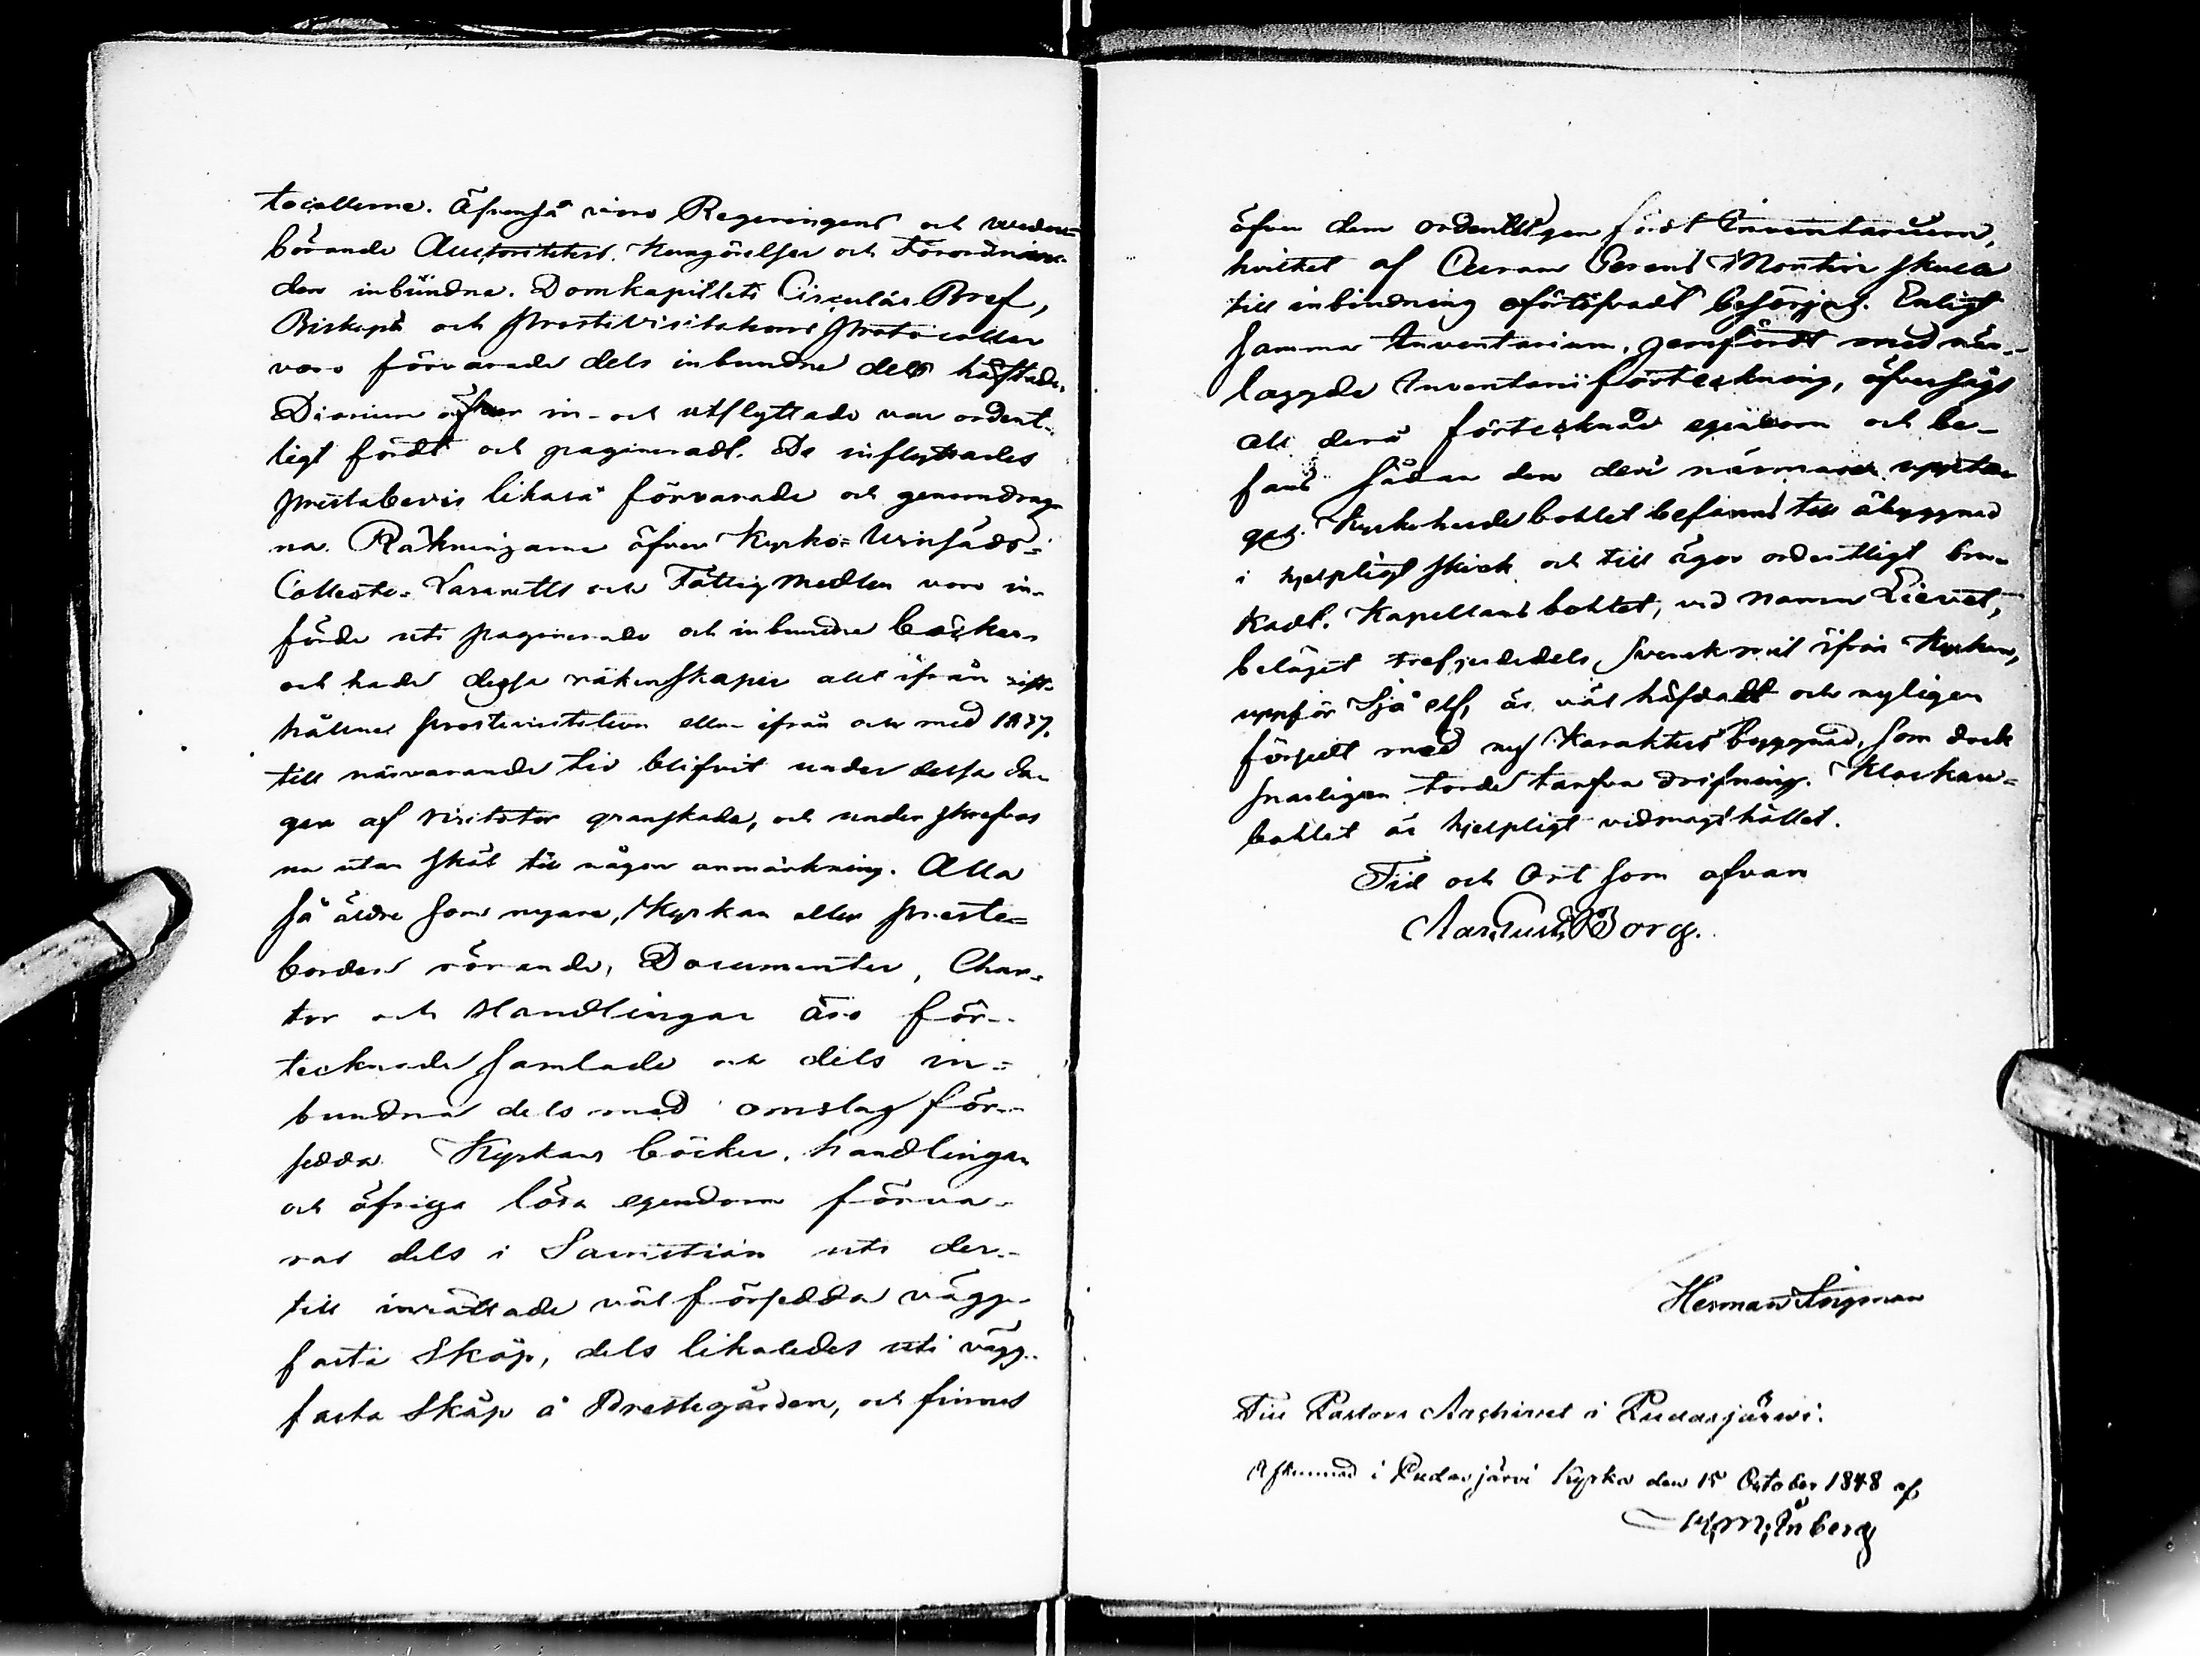 tocollerne. Äfvenså voro Regeringens och veder-
börande Auctoriteters Kungörelser och Förordnin-
dar inbundna. Domkapitlets Circulär Bref,
Biskops och Prostevisitations Protocoller
voro förvarade dels inbundne dels häftade.
Diarium öfver in- och utflyttade var ordent-
ligt fördt och pagineradt. De inflyttades
prestabevis likaså förvarade och genomdrag-
na. Räkningarne öfver Kyrko- Vinsäds-
Collecte- Lazaretts och Fattig Medlen voro in-
förde uti paginerade och inbundna böcker
och hade dessa räkenskaper allt ifrån sist-
hållne Prostevisitation eller ifrån och med 1837,
till närvarande tid blifvit under dessa da-
gar af Visitator granskade, och underskrefvos
nu utan skäl till någon anmärkning. Alla
så äldre som nyare, Kyrkan eller Preste-
bordet rörande, Documenter, Char-
tor och Handlingar äro för-
tecknade samlade och dels in-
bundna dels med omslag för-
sedda. Kyrkans böcker, handlingar
och öfriga lösa egendom förva-
ras dels i Sacristian uti der-
till inrättade väl försedda vägg-
fasta Skåp, dels likaledes uti vägg-
fasta Skåp å Prestegården, och finnes
öfver dem ordentligen fördt Inventarium,
hvilket af Curam Gerens Montin skulle
till inbindning oförtöfvadt besörjas. Enligt
samma Inventarium, jemfördt med när-
laggda Inventarii förteckning, öfversågs
all derå förtecknad egendom och be-
fans sådan den deri närmare uppta-
ges. Kyrkoherdebohlet befanns till åbyggnad
i hjelpligt skick och till ägor ordentligt bru-
kadt. Kapellansbohlet, vid namn Lievet,
beläget trefjerdedels Svensk mil ifrån Kyrkan,
uppför Ijo elf, är väl häfdadt och nyligen
försedt med ny Karakters byggnad, som dock
snarligen torde tarfva drifning. Klockar-
bohlet är hjelpligt vidmagthållet.
Tid och Ort som ofvan
Aar. Gust. Borg.
Herman
Till Pastors Archivet i Pudasjärvi.
Afskrifned i Pudasjärvi Kyrka den 15 October 1848 af